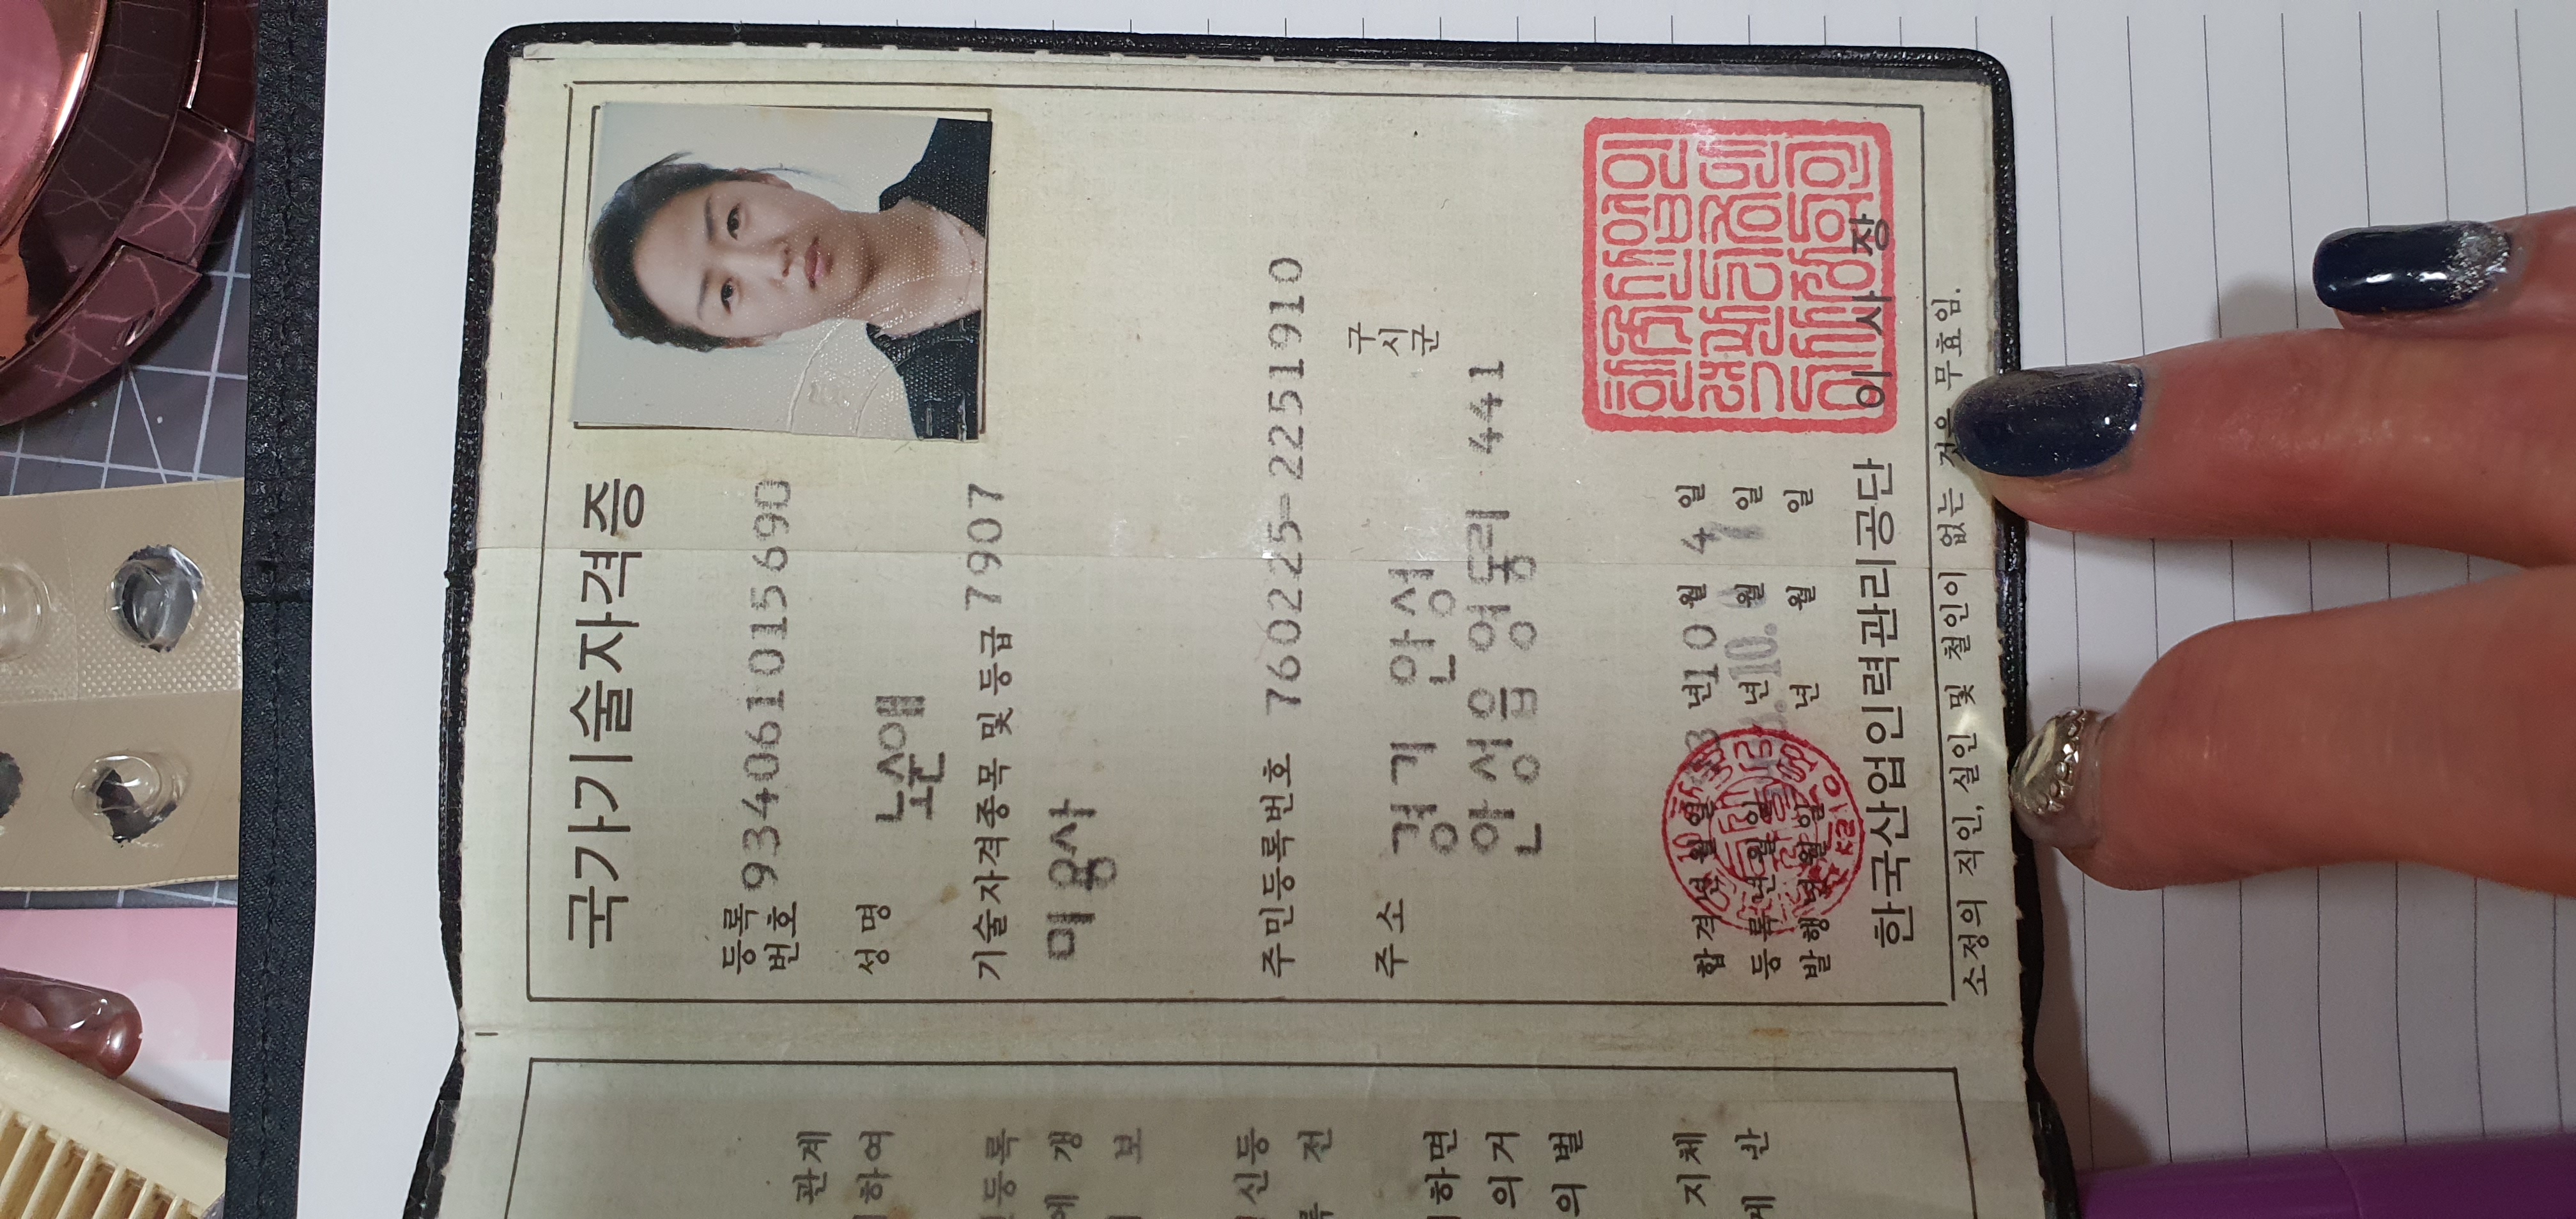 국가기술자격증
등록번호 93406101569０
성명 노순애
기술자격종목 및 등급 7907
미용사
주민등록번호 760225-2251910
주소 경기 안성 구시군
안성읍 영동리 441
합격년월일 93년10월 4일
등록년월일 년10.월 일
발행년월일 년 월 일
한국산업인력관리공단 이사장
소정의 직인, 실인 및 철인이 없는 것은 무효임.
관계
하여
등록
갱
보
신등
전
하면
의거
의 벌
지체